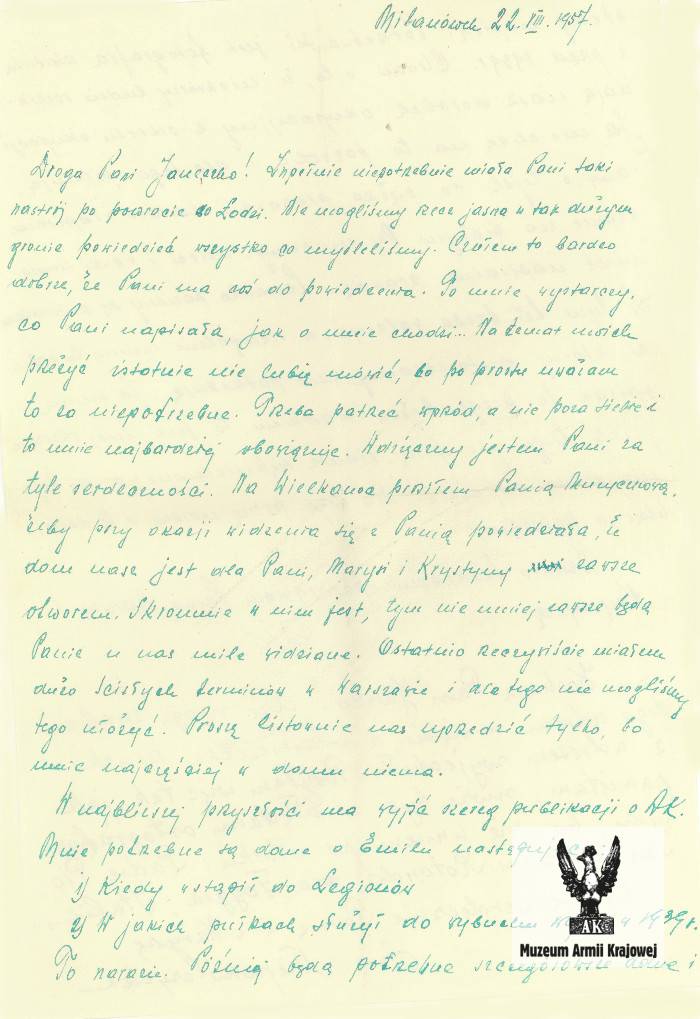 Milanówek 22.VIII.1957.
Droga Pani Janeczko! Zupełnie niepotrzebnie miała Pani taki
nastrój po powrocie do Łodzi. Nie mogliśmy rzecz jasna w tak dużym
gronie powiedzieć wszystko co myśleliśmy. Czułem to bardzo
dobrze, że Pani ma coś do powiedzenia. To mnie wystarczy,
co Pani napisała, jak o mnie chodzi... Na temat moich
przeżyć istotnie nie lubię mówić, bo po prostu uważam
to za niepotrzebne. Trzeba patrzeć wprzód, a nie poza siebie i
to mnie najbardziej obowiązuje. Wdzięczny jestem Pani za
tyle serdeczności. Na Wielkanoc prosiłem Panią
żeby przy okazji widzenia się z Panią powiedziała, że
dom nasz jest dla Pani, Marysi i Krystyny zawsze
otworem. Skromnie w nim jest, tym nie mniej zawsze będą
Panie u nas mile widziane. Ostatnio rzeczywiście miałem
dużo ścisłych terminów w Warszawie i dla tego nie mogliśmy
tego ułożyć. Proszę listownie nas uprzedzić tylko, bo
mnie najczęściej w domu niema.
W najbliższej przyszłości ma wyjść szereg publikacji o AK.
Mnie potrzebne są dane o Emilu
1) Kiedy wstąpił do Legionów
2) W jakich pułkach służył do wybuchu w 1939r.
To narazie. Później będą potrzebne szczegółowsze dane i
AK
Muzeum Armii Krajowej